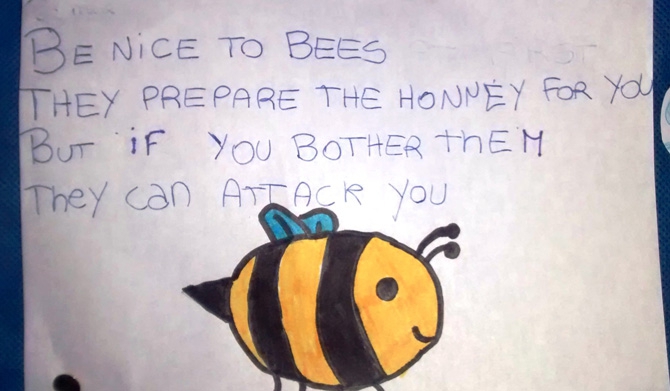 BE NiCE TO BEES
THEY PREPARE THE HONNEY FOR YOU
BUT iF YOU BOTHER thEM
They can ATTACK you